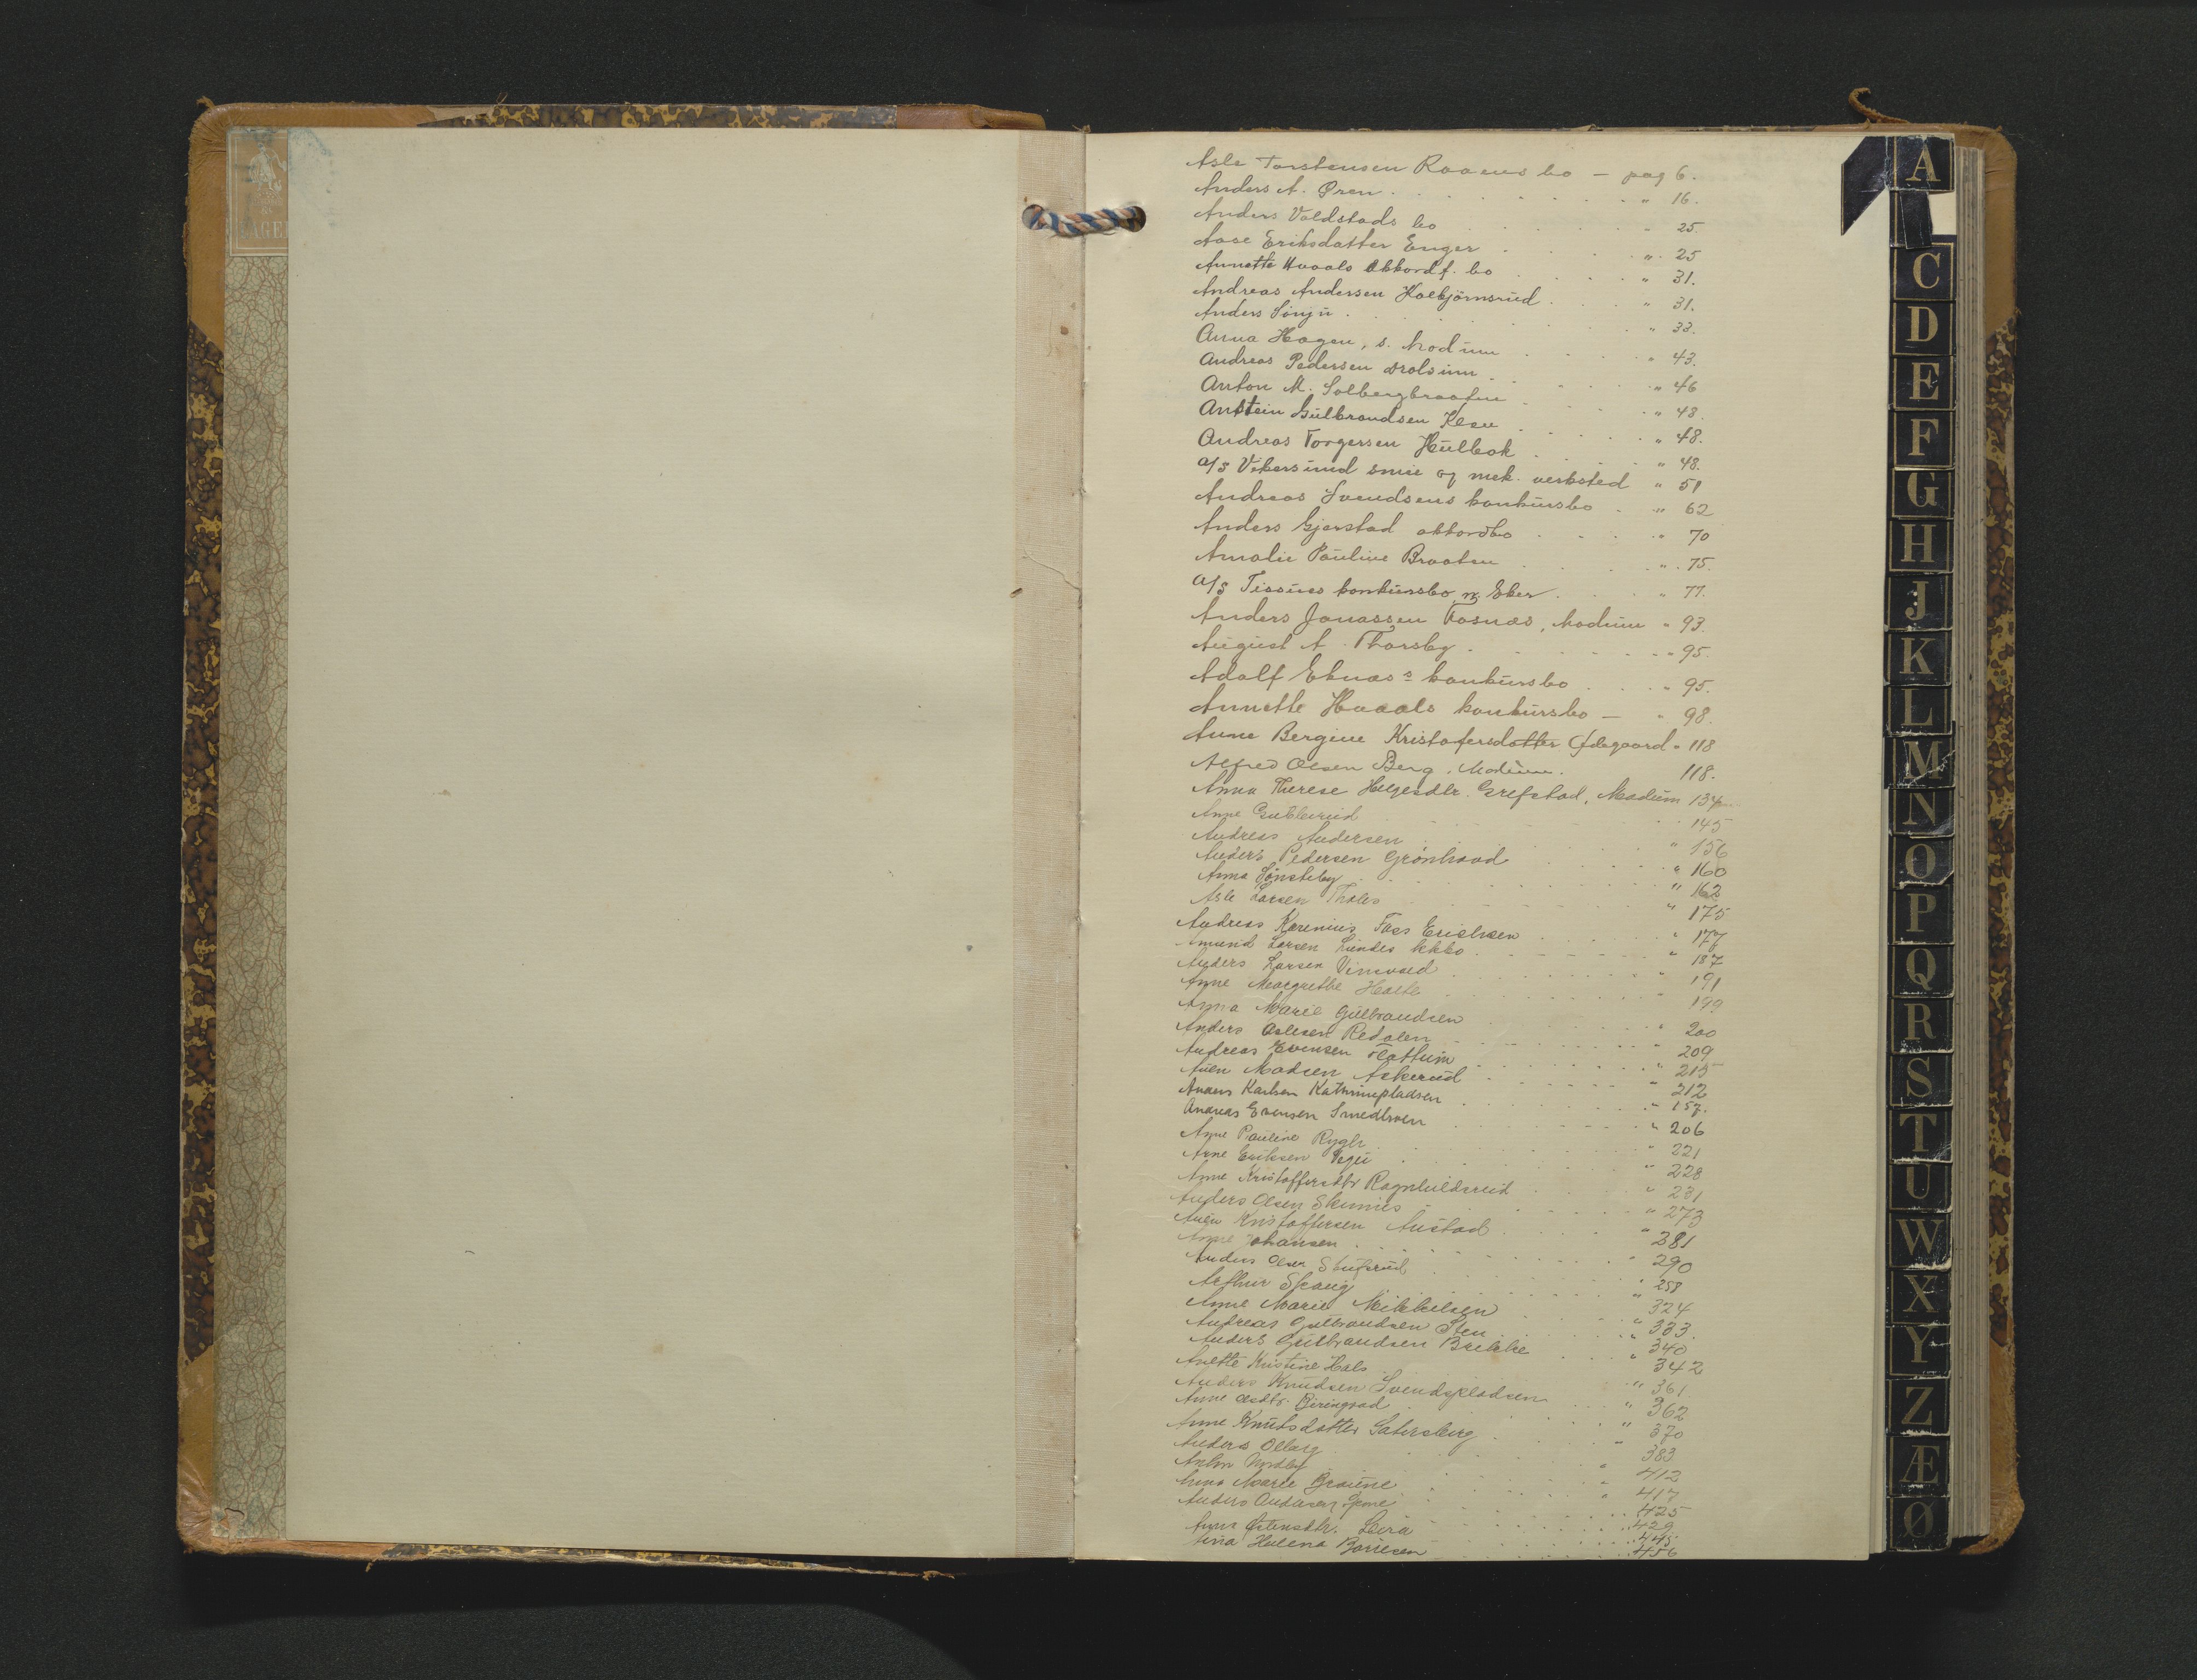 Asle Torstensen Raaens bo — pag 6.
Anders A. Øren . . . . . . . " 16.
Anders Voldstads bo . . . . . " 25.
Aase Eriksdatter Enger . . . . " 25
Annette Hvaals Akkordf. bo . . . " 31.
Andreas Andersen Kolbjörnsrud . . . " 31.
Anders Sönju . . . . . . . " 33.
Anna Hagen, s. Modum . . . . " 43.
Andreas Pedersen Drolsum . . . . " 46
Anton M. Solbergbraaten . . . . " 48.
Anstein Gulbrandsen Klev . . . . " 48.
Andreas Torgersen Hulbak . . . . " 48.
A/S Vikersund smie og mek. verksted " 51
Andreas Svendsens konkursbo . " 62
Anders Gjerstad akkordbo . . . . " 70
Amalie Pauline Braaten . . . . " 75.
A/S Tissues konkursbo, n. Eker . . . " 77.
Anders Jonassen Fosnæs, Modum " 93.
August A. Thorsby . . . . . . " 95.
Adolf Eknæs's konkursbo . . . " 95.
Annette Hvaals konkursbo — " 98.
Anne Bergine Kristofersdatter Ødegaard " 118
Alfred Olsen Berg, Modum. 118.
Anna Therese Helgesdtr. Grefstad, Modum 134
Anne Gubberud . . . . . . 145
Andreas Andersen . . . . . " 156
Anders Pedersen Grönhovd . . . . " 160
Anna Sönsteby . . . . . . " 162
Asle Larsen Tholes . . . . . " 175
Andreas Karenius Foss Erichsen . . . " 177
Amund Larsen Lundes kkbo . . . . " 187
Anders Larsen Vimosed . . . . " 191
Anne Margrethe Holte . . . . " 199
Anna Marie Gulbrandsen . . . . " 200
Anders Aslesen Redalen . . . . " 209
Andreas Evensen Flattum . . . . " 215
Auen Madsen Askerud . . . . " 212
Anders Karlsen Kathrinepladsen . . . " 157.
Andreas Evensen Smedhoen . . . . " 206
Anne Pauline Rygh . . . . . " 221
Arne Eriksen Vegu . . . . . " 228
Anne Kristoffersdtr Ragnhildsrud . . . " 231
Anders Olsen Skinnes . . . . " 273
Auen Kristoffersen Austad . . . . " 281
Anne Johansen . . . . . . " 290
Anders Olsen Stufsrud . . . . " 258
Arthur Skaug . . . . . . " 324
Anne Marie Mikkelsen . . . . " 333.
Andreas Gulbrandsen Sten . . . . " 340
Anders Gulbrandsen Brekke . . . " 342
Anette Kristine Hals . . . . " 361
Anders Knudsen Svendspladsen . . . " 362
Anne Olsdtr. Beringvad . . . . " 370
Anne Knutsdatter Sætersberg . . . " 383
Anders Olberg . . . . . . " 412
Anton Nordby . . . . . . " 417
Anna Marie Braune . . . . . 425
Anders Andersen Sponé . . . . 429
Anne Østensdtr. Leira . . . . 445
Anna Helena Borresen . . . . 456
A
C
D
E
F
G
H
J
K
L
M
N
O
P
Q
R
S
T
U
W
X
Y
Z
Æ
Ø